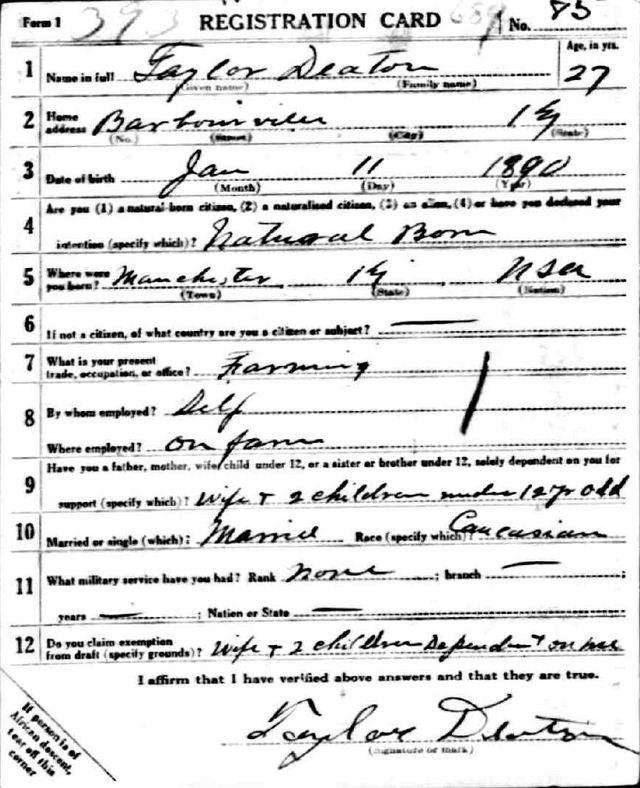 Form 1 393 REGISTRATION CARD No. 85
1 Name in full Taylor Deaton Age, in yrs.
(Given name) (Family name) 27
2 Home address Barbourville Ky
(No.) (Street) (City) (State)
3 Date of birth Jan 11 1890
(Month) (Day) (Year)
Are you (1) a natural-born citizen, (2) a naturalized citizen, (3) an alien, (4) or have you declared your
4 intention (specify which)? Natural Born
5 Where were you born? Manchester Ky USA
(Town) (State) (Nation)
6 If not a citizen, of what country are you a citizen or subject?
7 What is your present trade, occupation, or office? Farming
8 By whom employed? Self
Where employed? on farm
Have you a father, mother, wife, child under 12, or a sister or brother under 12, solely dependent on you for
9 support (specify which)? Wife + 2 children under 12 yr old
10 Married or single (which)? Married Race (specify which)? Caucasian
11 What military service have you had? Rank none ; branch ;
years ; Nation or State
12 Do you claim exemption from draft (specify grounds)? Wife + 2 children Dependent on me
I affirm that I have verified above answers and that they are true.
Taylor Deaton
(Signature or mark)
If person is of
African descent,
tear off this
corner